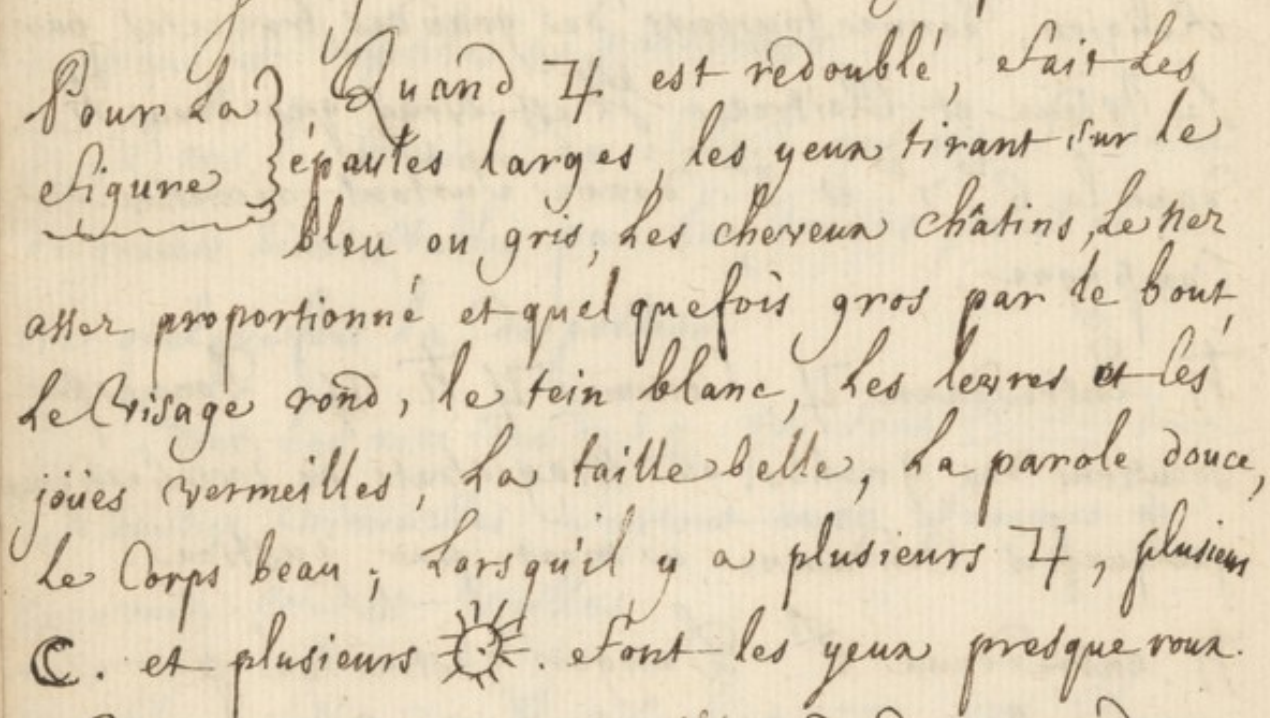 Pour La } Quand ♃ est redoublé, fait Les
figure } épaules larges, les yeux tirant sur le
bleu ou gris, Les cheveux châtins, Le nez
assez proportionné et quelquefois gros par le bout,
Le visage rond, le tein blanc, Les levres et les
joües vermeilles, La taille belle, La parole douce,
Le Corps beau ; Lorsqu'il y a plusieurs ♃, plusieurs
☾. et plusieurs ☉. font les yeux presque roux.